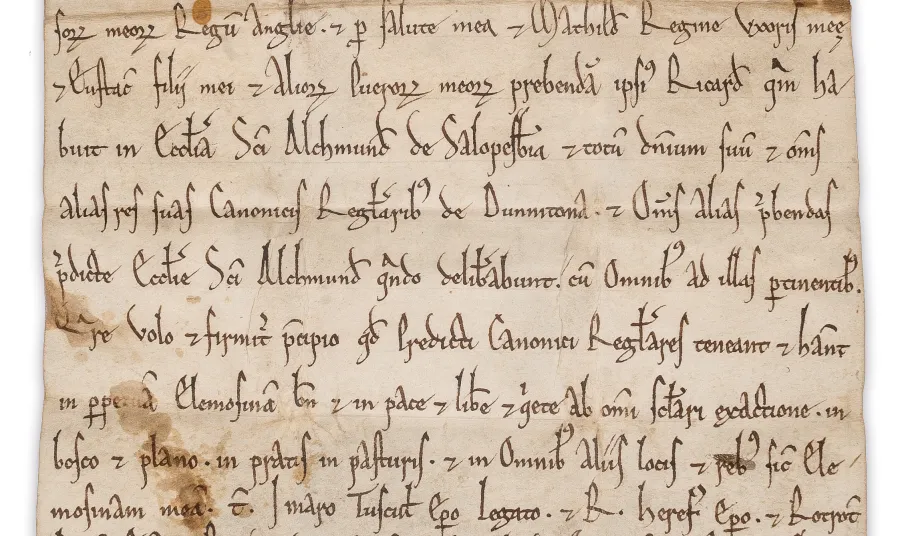 sorꝝ meorꝝ Regū Anglie. ⁊ ꝑ salute mea ⁊ Mathild̄ Regine Uxoris meę
⁊ Eustac̄ filij mei ⁊ Aliorꝝ Puerorꝝ meorꝝ prebendā ipsiꝰ Ricard̄ qm̄ ha-
buit in Eccl̄ia Sc̄i Alchmund̄ de Salopesb̄ia ⁊ totū dn̄ium suū ⁊ om̄s
alias res suas Canonicis Regl̄aribꝰ de Dunnitona. ⁊ Om̄s alias p̄bendas
p̄dicte Eccl̄ie Sc̄i Alchmund̄ qn̄do delib̄abunt. cū Omnibꝰ ad illas ꝑtinentibꝰ.
Qare volo ⁊ firmit̄ p̄cipio qd̄ Predicti Canonici Regl̄ares teneant ⁊ hān̄t
in ꝑpetuā Elemosinā bn̄ ⁊ in pace ⁊ lib̄e ⁊ qete Ab om̄i sc̄lari exactione. in
bosco ⁊ plano. in pratis in pasturis. ⁊ in Omnibꝰ Aliis locis ⁊ rebꝰ sic̄ Ele-
mosinam meā. T̄. Imaro Tuscul̄ Ep̄o Legato. ⁊ R. herefꝰ Ep̄o. ⁊ Rotrot̄